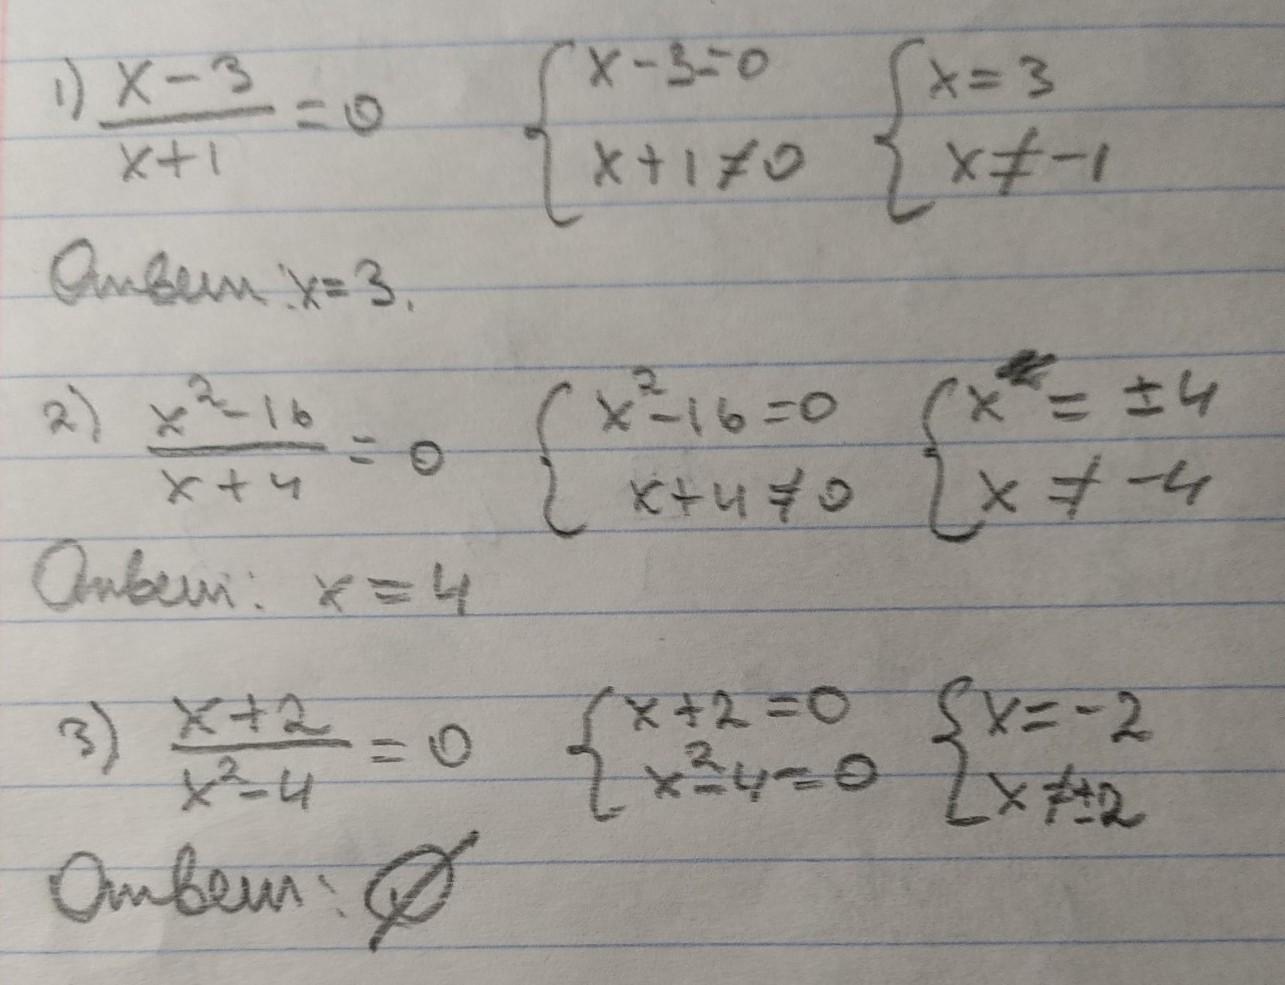 1) (x-3)/(x+1) = 0 { x-3=0 x+1≠0 { x=3 x≠-1
Ответ: x=3.
2) (x²-16)/(x+4) = 0 { x²-16=0 x+4≠0 { x = ±4 x ≠ -4
Ответ: x = 4
3) (x+2)/(x²-4) = 0 { x+2=0 x²-4=0 { x=-2 x≠±2
Ответ: ∅